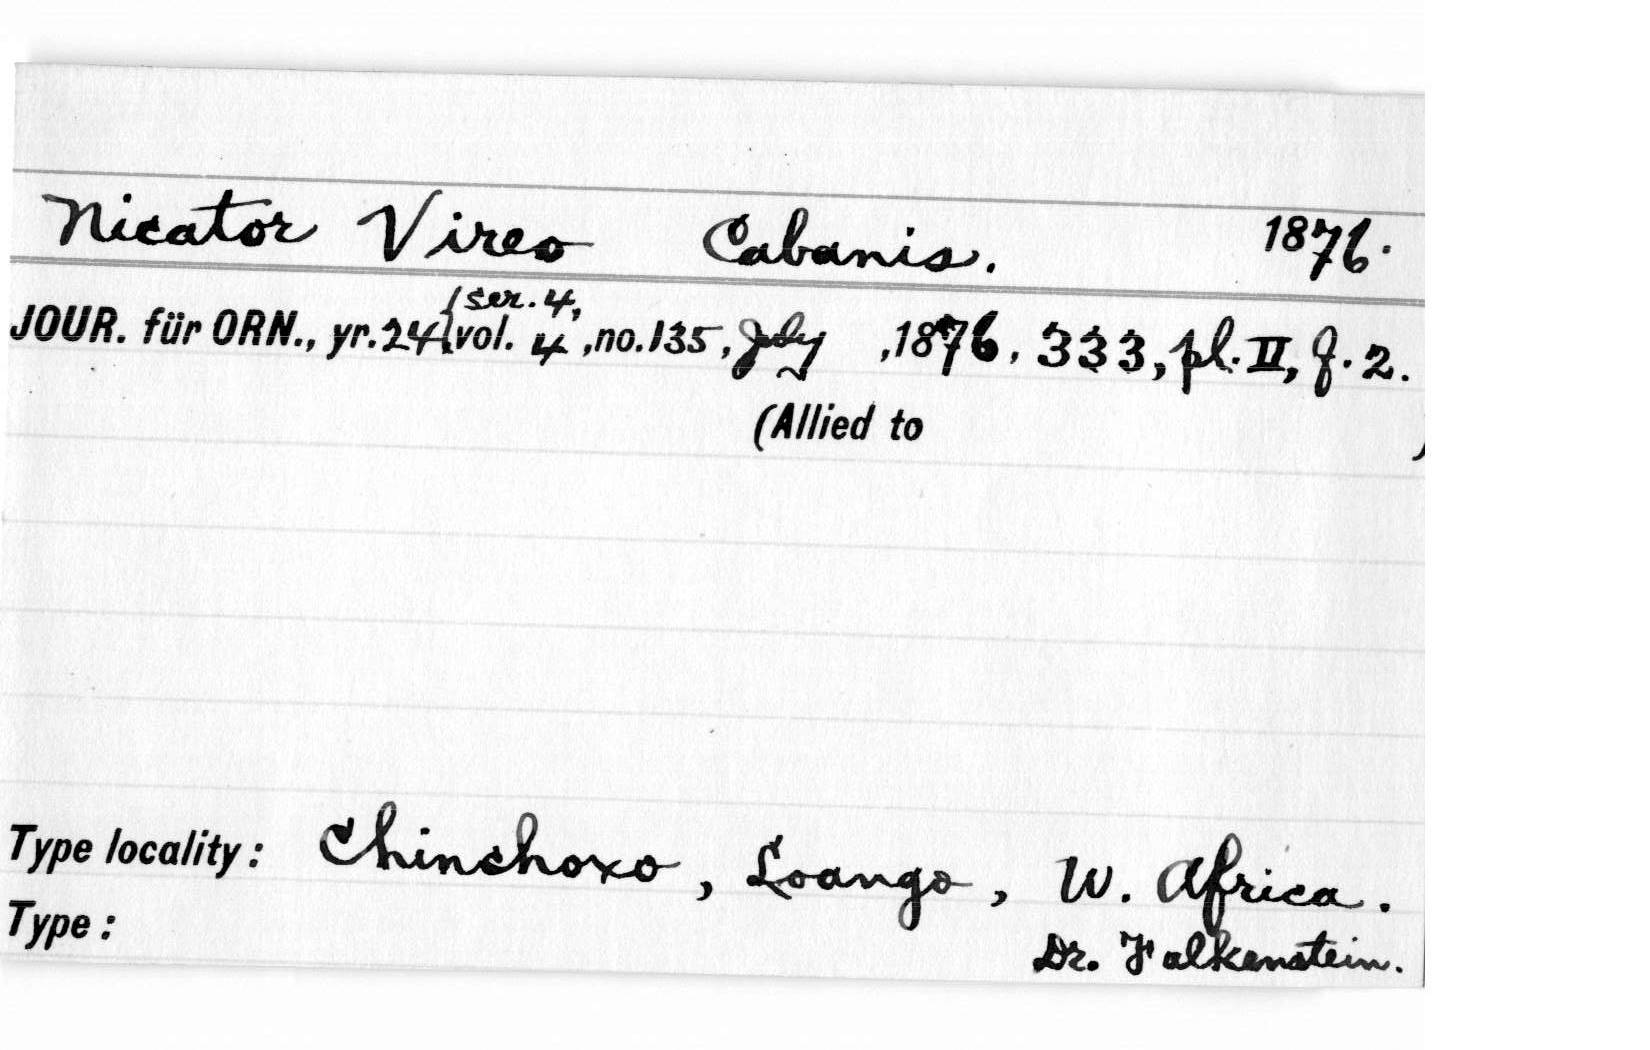 Nicator Vireo Cabanis. 1876.
JOUR. für ORN., yr. 24 { ser. 4, vol. 4, no. 135, July, 1876, 333, pl. II, f. 2.
(Allied to )
Type locality: Chinchoxo, Loango, W. Africa.
Type: Dr. Falkenstein.